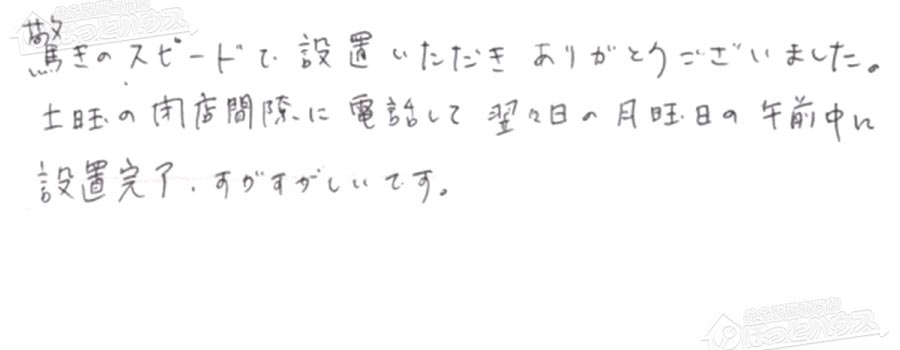 驚きのスピードで設置いただきありがとうございました。
土曜の閉店間際に電話して翌々日の月曜日の午前中に
設置完了、すがすがしいです。
ほっとハウス